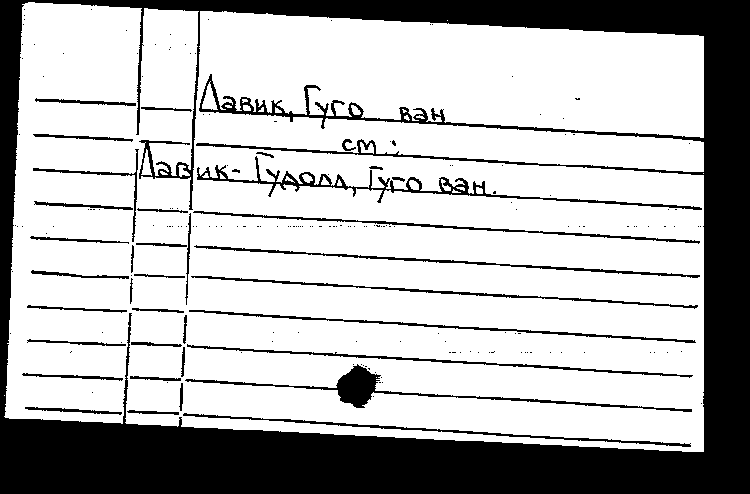 Лавик, Гуго ван
см:
Лавик-Гудолл, Гуго ван.